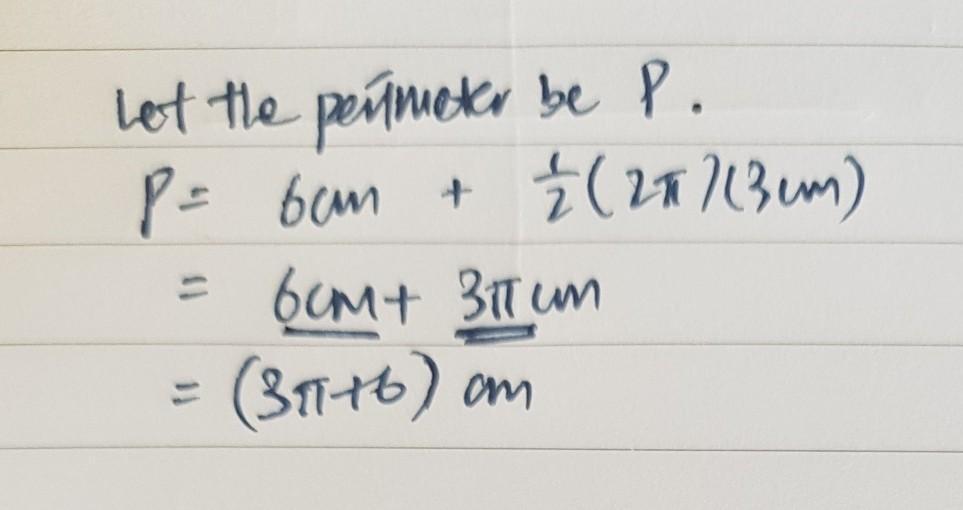 Let the perimeter be P.
P = 6cm + 1/2(2π)(3cm)
= 6cm + 3π cm
= (3π+6) cm